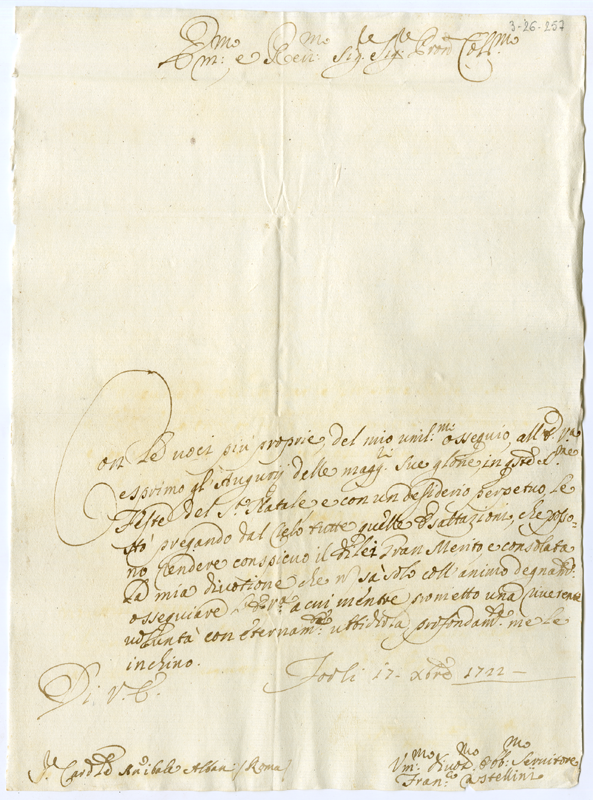 3-26-257
Em.mo e Rev.mo Sig.re Sig.re Pron Coll.mo
Con le voci più proprie, del mio umil.mo ossequio, all'E. V.ra
esprimo gl'Augurij delle magg.ri sue glorie in q.ste S.me
Feste del S. Natale e con un desiderio perpetuo, le
stò pregando dal Cielo tutte quelle Esaltazioni, che posso-
no rendere conspicuo il di lei Gran Merito e consolata
la mia divotione che n sà solo coll'animo degnam.te
osseguiare l'E. V.ra a cui mentre prometto una riverente
volontà con eternam.te ubbidirla, profondam.te me le
inchino.
Di V. E.
Forlì 17 - Xbre 1722 -
S.r Card.le Annibale Albani / Roma /
Um.mo Divot.mo Obb.mo Servitore
Fran.co Castellini